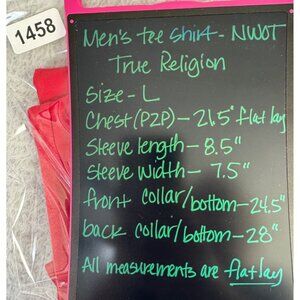 1458
Men's tee shirt - NWOT
True Religion
Size - L
Chest (P2P) - 21.5" flat lay
Sleeve length - 8.5"
Sleeve width - 7.5"
front collar/bottom - 24.5"
back collar/bottom - 28"
All measurements are flat lay